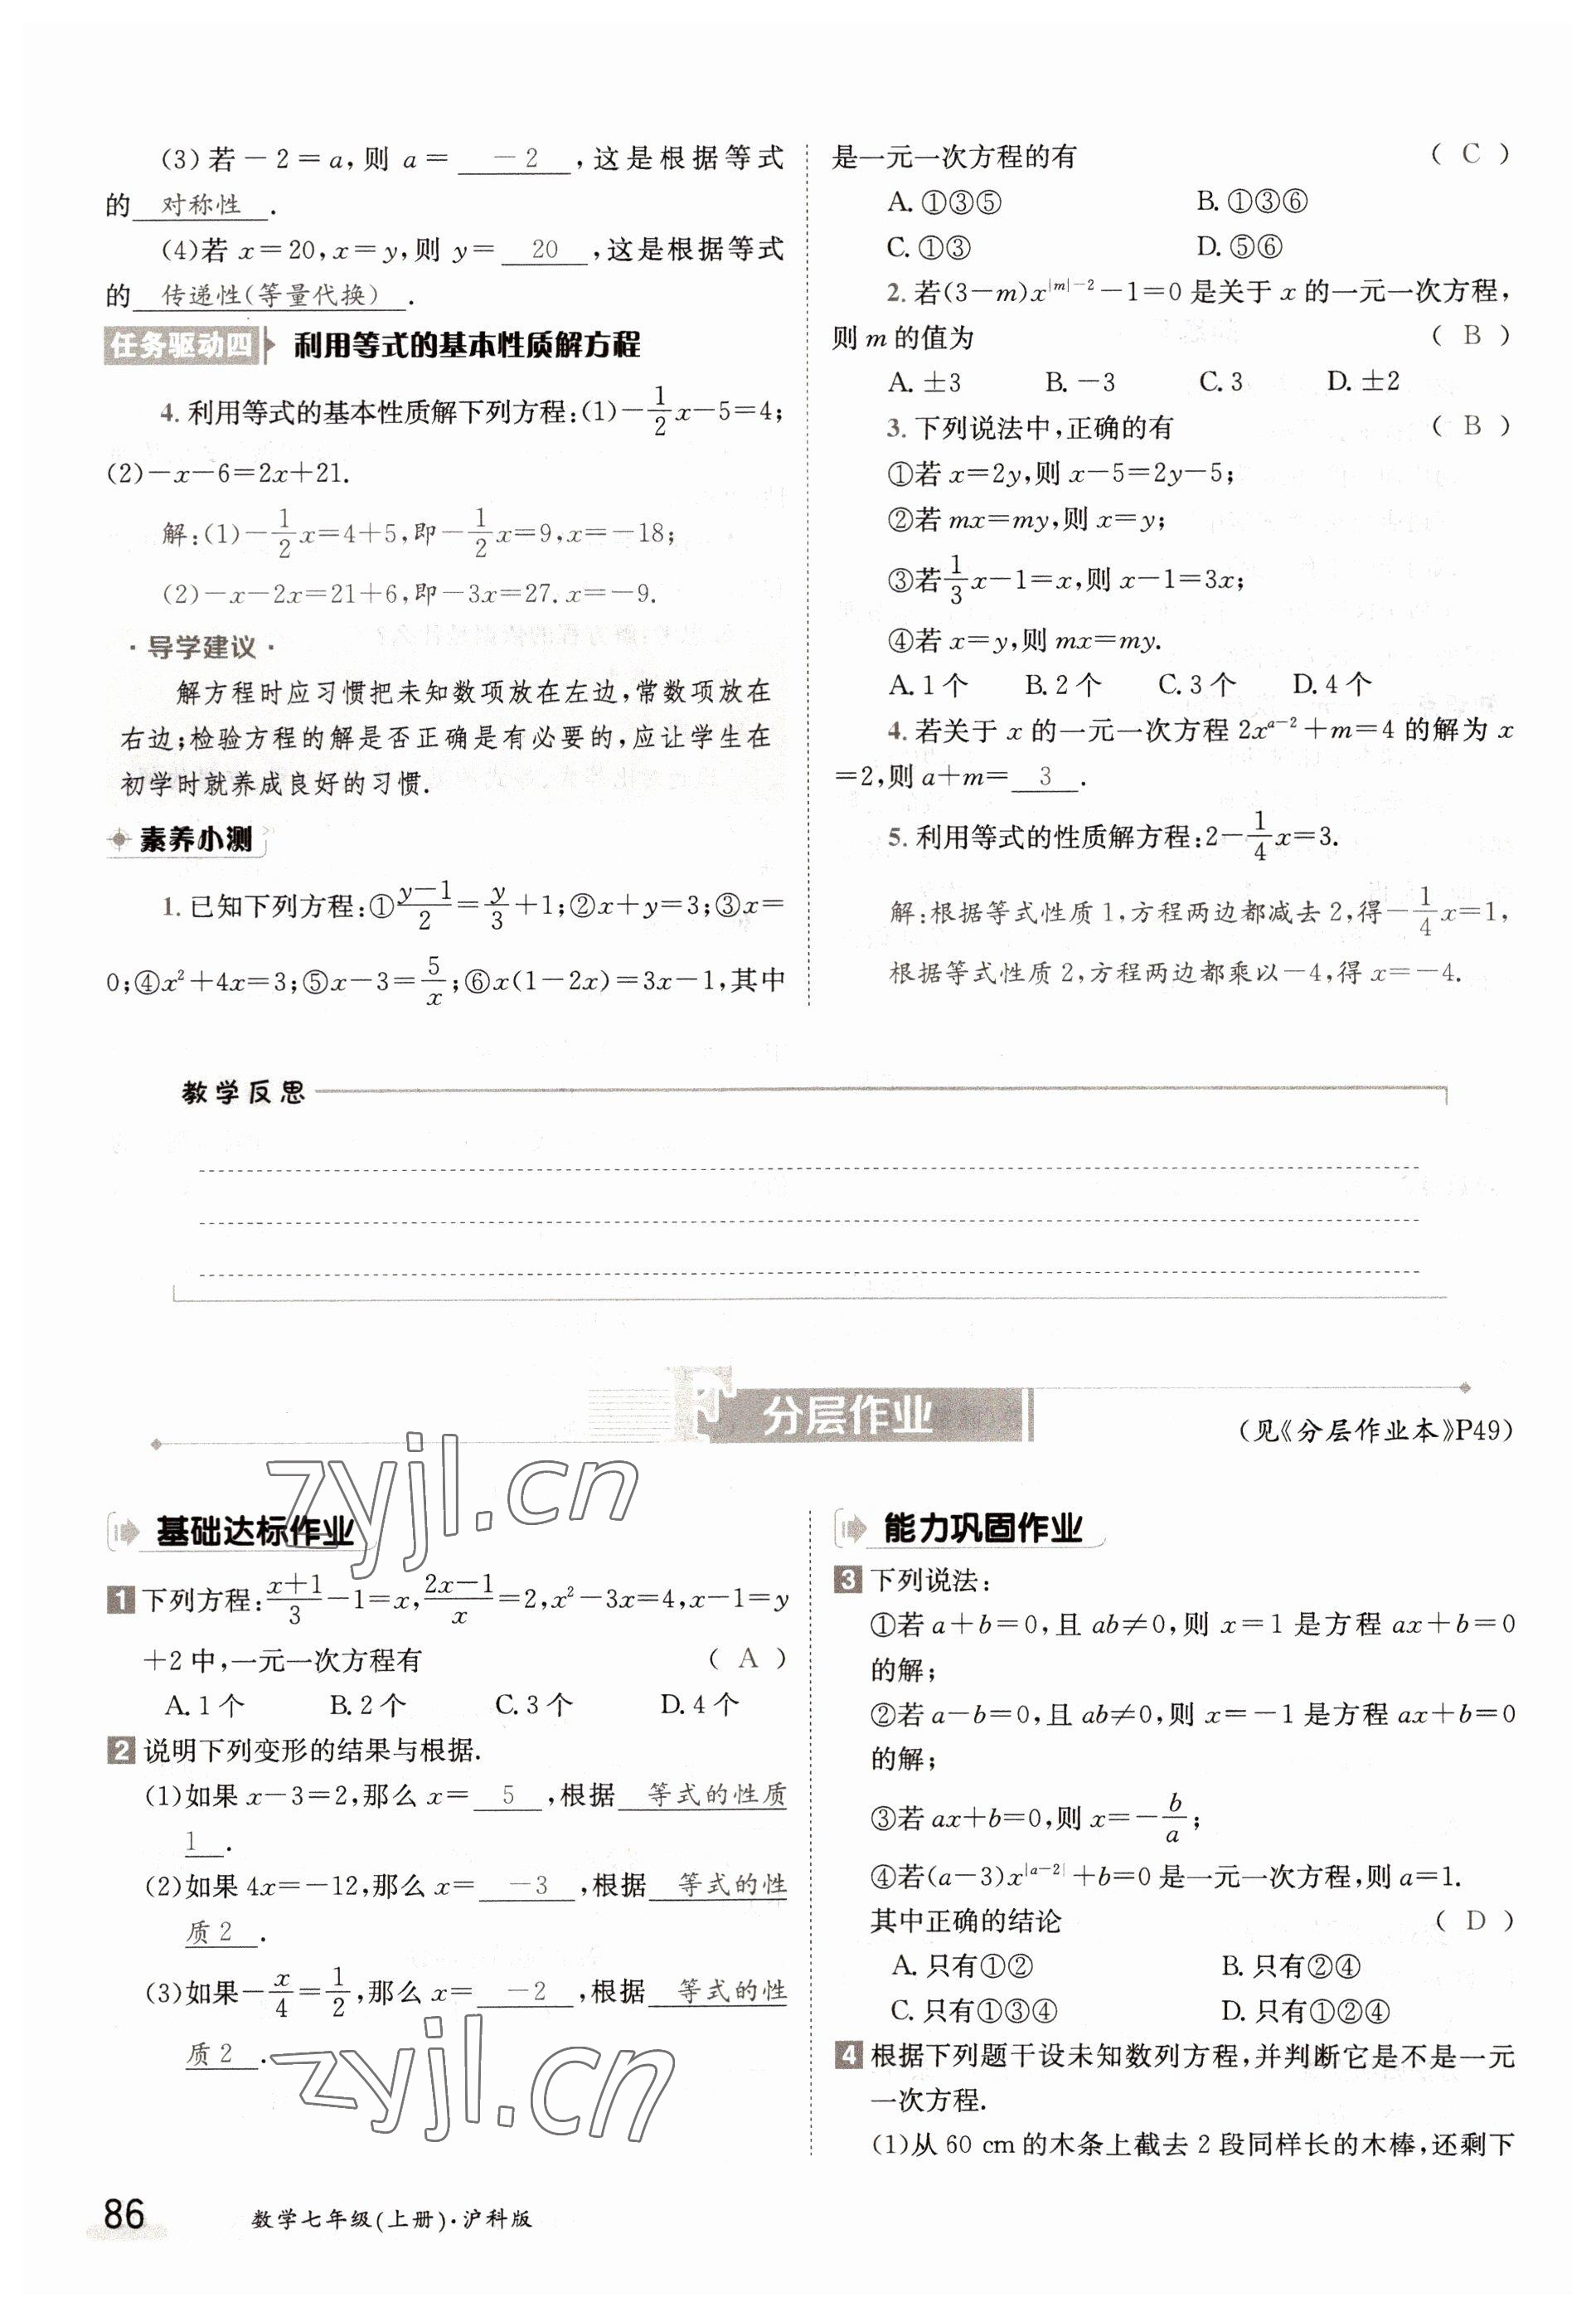 (3)若－2＝a,则 a＝ －2 ,这是根据等式
的 对称性 .
(4)若 x＝20,x＝y,则 y＝ 20 ,这是根据等式
的 传递性(等量代换) .
任务驱动四 利用等式的基本性质解方程
4. 利用等式的基本性质解下列方程:(1)－1/2x－5＝4;
(2)－x－6＝2x＋21.
解:(1)－1/2x＝4＋5,即－1/2x＝9,x＝－18;
(2)－x－2x＝21＋6,即－3x＝27.x＝－9.
·导学建议·
解方程时应习惯把未知数项放在左边,常数项放在
右边;检验方程的解是否正确是有必要的,应让学生在
初学时就养成良好的习惯.
素养小测
1. 已知下列方程:①(y－1)/2＝y/3＋1;②x＋y＝3;③x＝
0;④x²＋4x＝3;⑤x－3＝5/x;⑥x(1－2x)＝3x－1,其中
是一元一次方程的有 ( C )
A. ①③⑤ B. ①③⑥
C. ①③ D. ⑤⑥
2. 若(3－m)x^{|m|－2}－1＝0 是关于 x 的一元一次方程,
则 m 的值为 ( B )
A. ±3 B. －3 C. 3 D. ±2
3. 下列说法中,正确的有 ( B )
①若 x＝2y,则 x－5＝2y－5;
②若 mx＝my,则 x＝y;
③若1/3x－1＝x,则 x－1＝3x;
④若 x＝y,则 mx＝my.
A. 1 个 B. 2 个 C. 3 个 D. 4 个
4. 若关于 x 的一元一次方程 2x^{a－2}＋m＝4 的解为 x
＝2,则 a＋m＝ 3 .
5. 利用等式的性质解方程:2－1/4x＝3.
解:根据等式性质 1,方程两边都减去 2,得－1/4x＝1,
根据等式性质 2,方程两边都乘以－4,得 x＝－4.
教学反思
分层作业
(见《分层作业本》P49)
基础达标作业
1 下列方程:(x＋1)/3－1＝x,(2x－1)/x＝2,x²－3x＝4,x－1＝y
＋2 中,一元一次方程有 ( A )
A. 1 个 B. 2 个 C. 3 个 D. 4 个
2 说明下列变形的结果与根据.
(1)如果 x－3＝2,那么 x＝ 5 ,根据 等式的性质
1 .
(2)如果 4x＝－12,那么 x＝ －3 ,根据 等式的性
质 2 .
(3)如果－x/4＝1/2,那么 x＝ －2 ,根据 等式的性
质 2 .
能力巩固作业
3 下列说法:
①若 a＋b＝0,且 ab≠0,则 x＝1 是方程 ax＋b＝0
的解;
②若 a－b＝0,且 ab≠0,则 x＝－1 是方程 ax＋b＝0
的解;
③若 ax＋b＝0,则 x＝－b/a;
④若(a－3)x^{|a－2|}＋b＝0 是一元一次方程,则 a＝1.
其中正确的结论 ( D )
A. 只有①② B. 只有②④
C. 只有①③④ D. 只有①②④
4 根据下列题干设未知数列方程,并判断它是不是一元
一次方程.
(1)从 60 cm 的木条上截去 2 段同样长的木棒,还剩下
86 数学七年级(上册)·沪科版
zyjl.cn
zyjl.cn